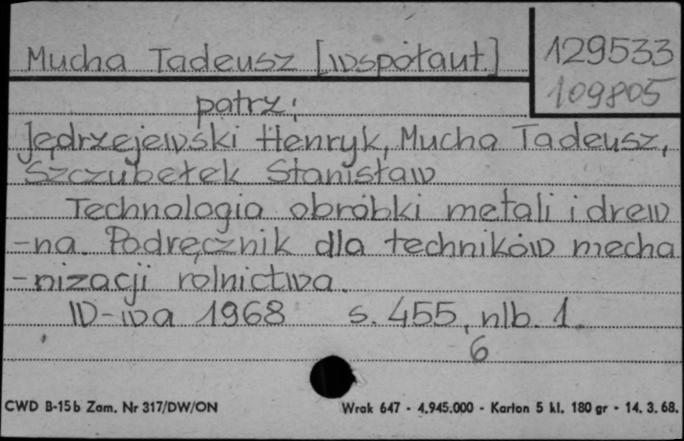 Mucha Tadeusz [współaut.]
129533
109805
patrz:
Jędrzejewski Henryk, Mucha Tadeusz,
Szczubełek Stanisław
Technologia obróbki metali i drew
-na. Podręcznik dla techników mecha
-nizacji rolnictwa.
W-wa 1968 s. 455, nlb. 1.
6
CWD B-15b Zam. Nr 317/DW/ON
Wrak 647 - 4.945.000 - Karton 5 kl. 180 gr - 14. 3. 68.